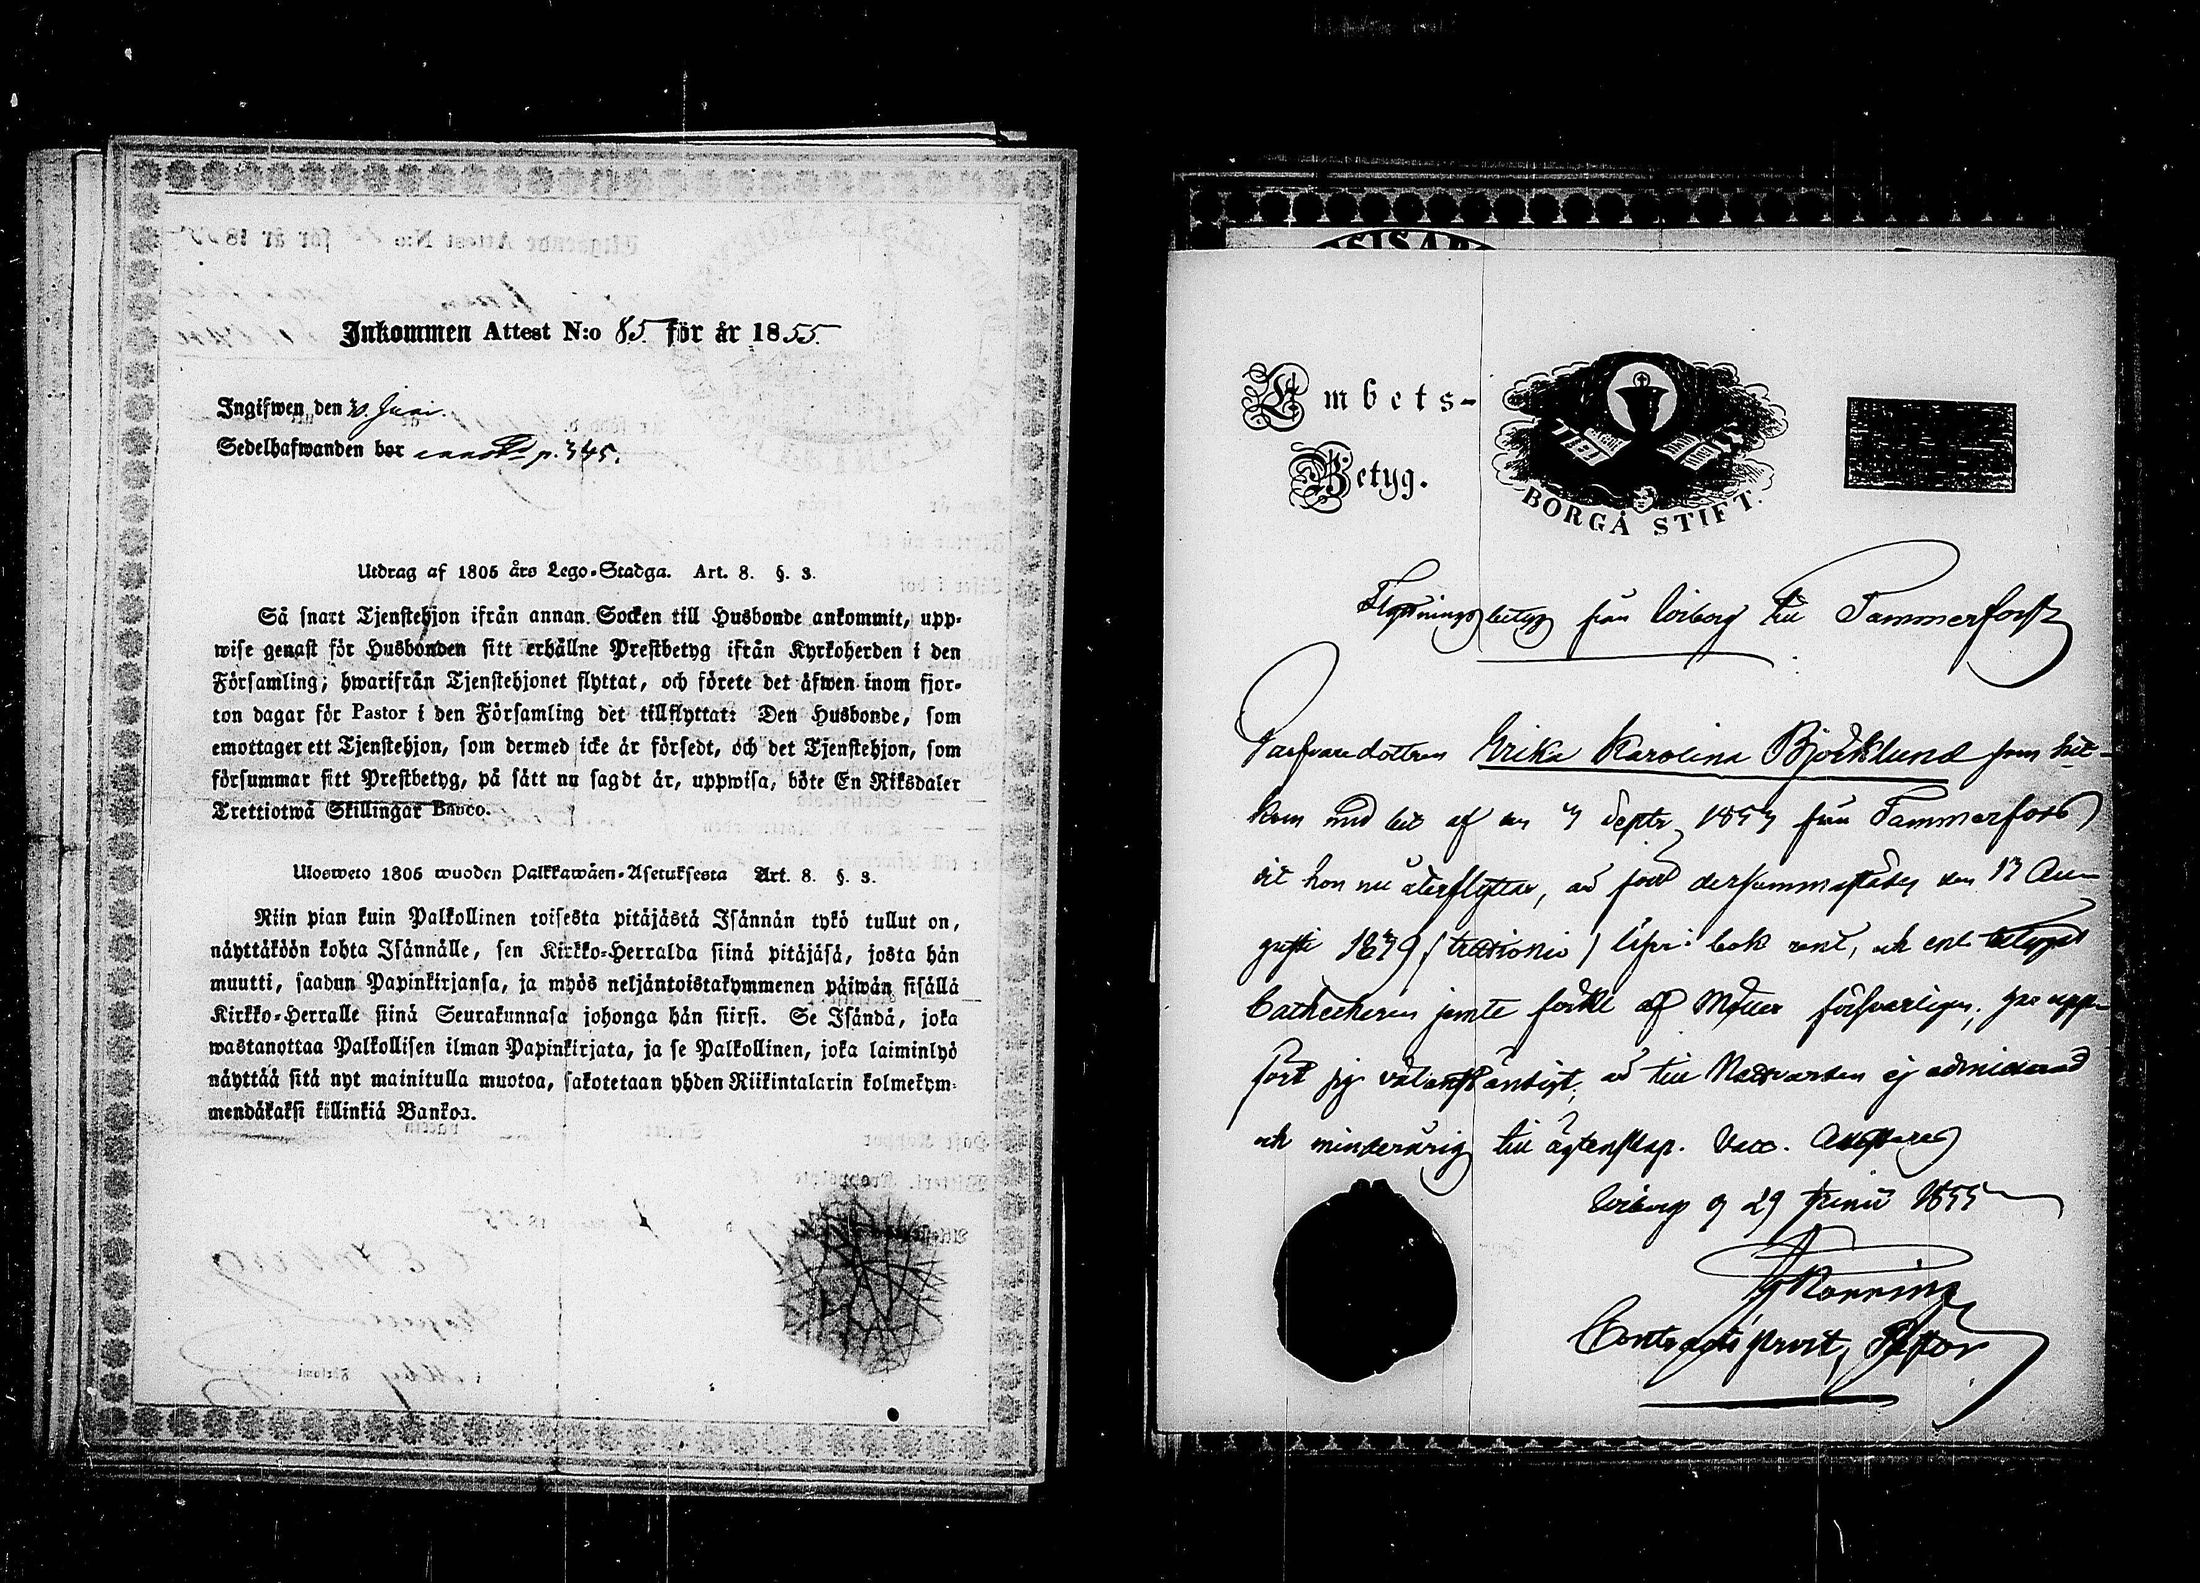 Inkommen Attest N:o 85 för år 1855.
Ingifwen den 30 Juni.
Sedelhafwanden bor p. 345.
Utdrag af 1805 års Lego-Stadga. Art. 8. §. 3.
Så snart Tjenstehjon ifrån annan Socken till Husbonde ankommit, upp-
wise genast för Husbonden sitt erhållne Prestbetyg ifrån Kyrkoherden i den
Församling, hwarifrån Tjenstehjonet flyttat, och förete det äfwen inom fjor-
ton dagar för Pastor i den Församling det tillflyttat: Den Husbonde, som
emottager ett Tjenstehjon, som dermed icke är försedt, och det Tjenstehjon, som
försummar sitt Prestbetyg, på sätt nu sagdt är, uppwisa, böte En Riksdaler
Trettiotwå Skillingar Banco.
Ulosweto 1805 wuoden Palkkawäen-Asetuksesta Art. 8. §. 3.
Niin pian kuin Palkollinen toisesta pitäjästä Isännän tykö tullut on,
näyttäköön kohta Isännälle, sen Kirkko-Herralda siinä pitäjäsä, josta hän
muutti, saadun Papinkirjansa, ja myös neljäntoistakymmenen päiwän sisällä
Kirkko-Herralle siinä Seurakunnasa johonga hän siirsi. Se Isändä, joka
wastanottaa Palkollisen ilman Papinkirjata, ja se Palkollinen, joka laiminlyö
näyttää sitä nyt mainitulla muotoa, sakotetaan yhden Riikintalarin kolmekym-
mendäkaksi killinkiä Bankoa.
Embets-
Betyg.
BORGÅ STIFT.
Flyttningsbetyg från Wiborg till Tammerfors
Erika Karolina Björklund som hit-
kom med bet af den 7 Septr 1853 från Tammerfors
dit hon nu återflyttar, är född dersammastädes den 13 Au-
gusti 1839 bok rent, och enl betyget
Cathechesen jemte förkl af försvarligen,
fört sig välanständigt, är till Nattvarden ej admitterad
och minderårig till ägtenskap. Vacc.
Wiborg d 29 Junii 1855
Contractsprost, Pastor